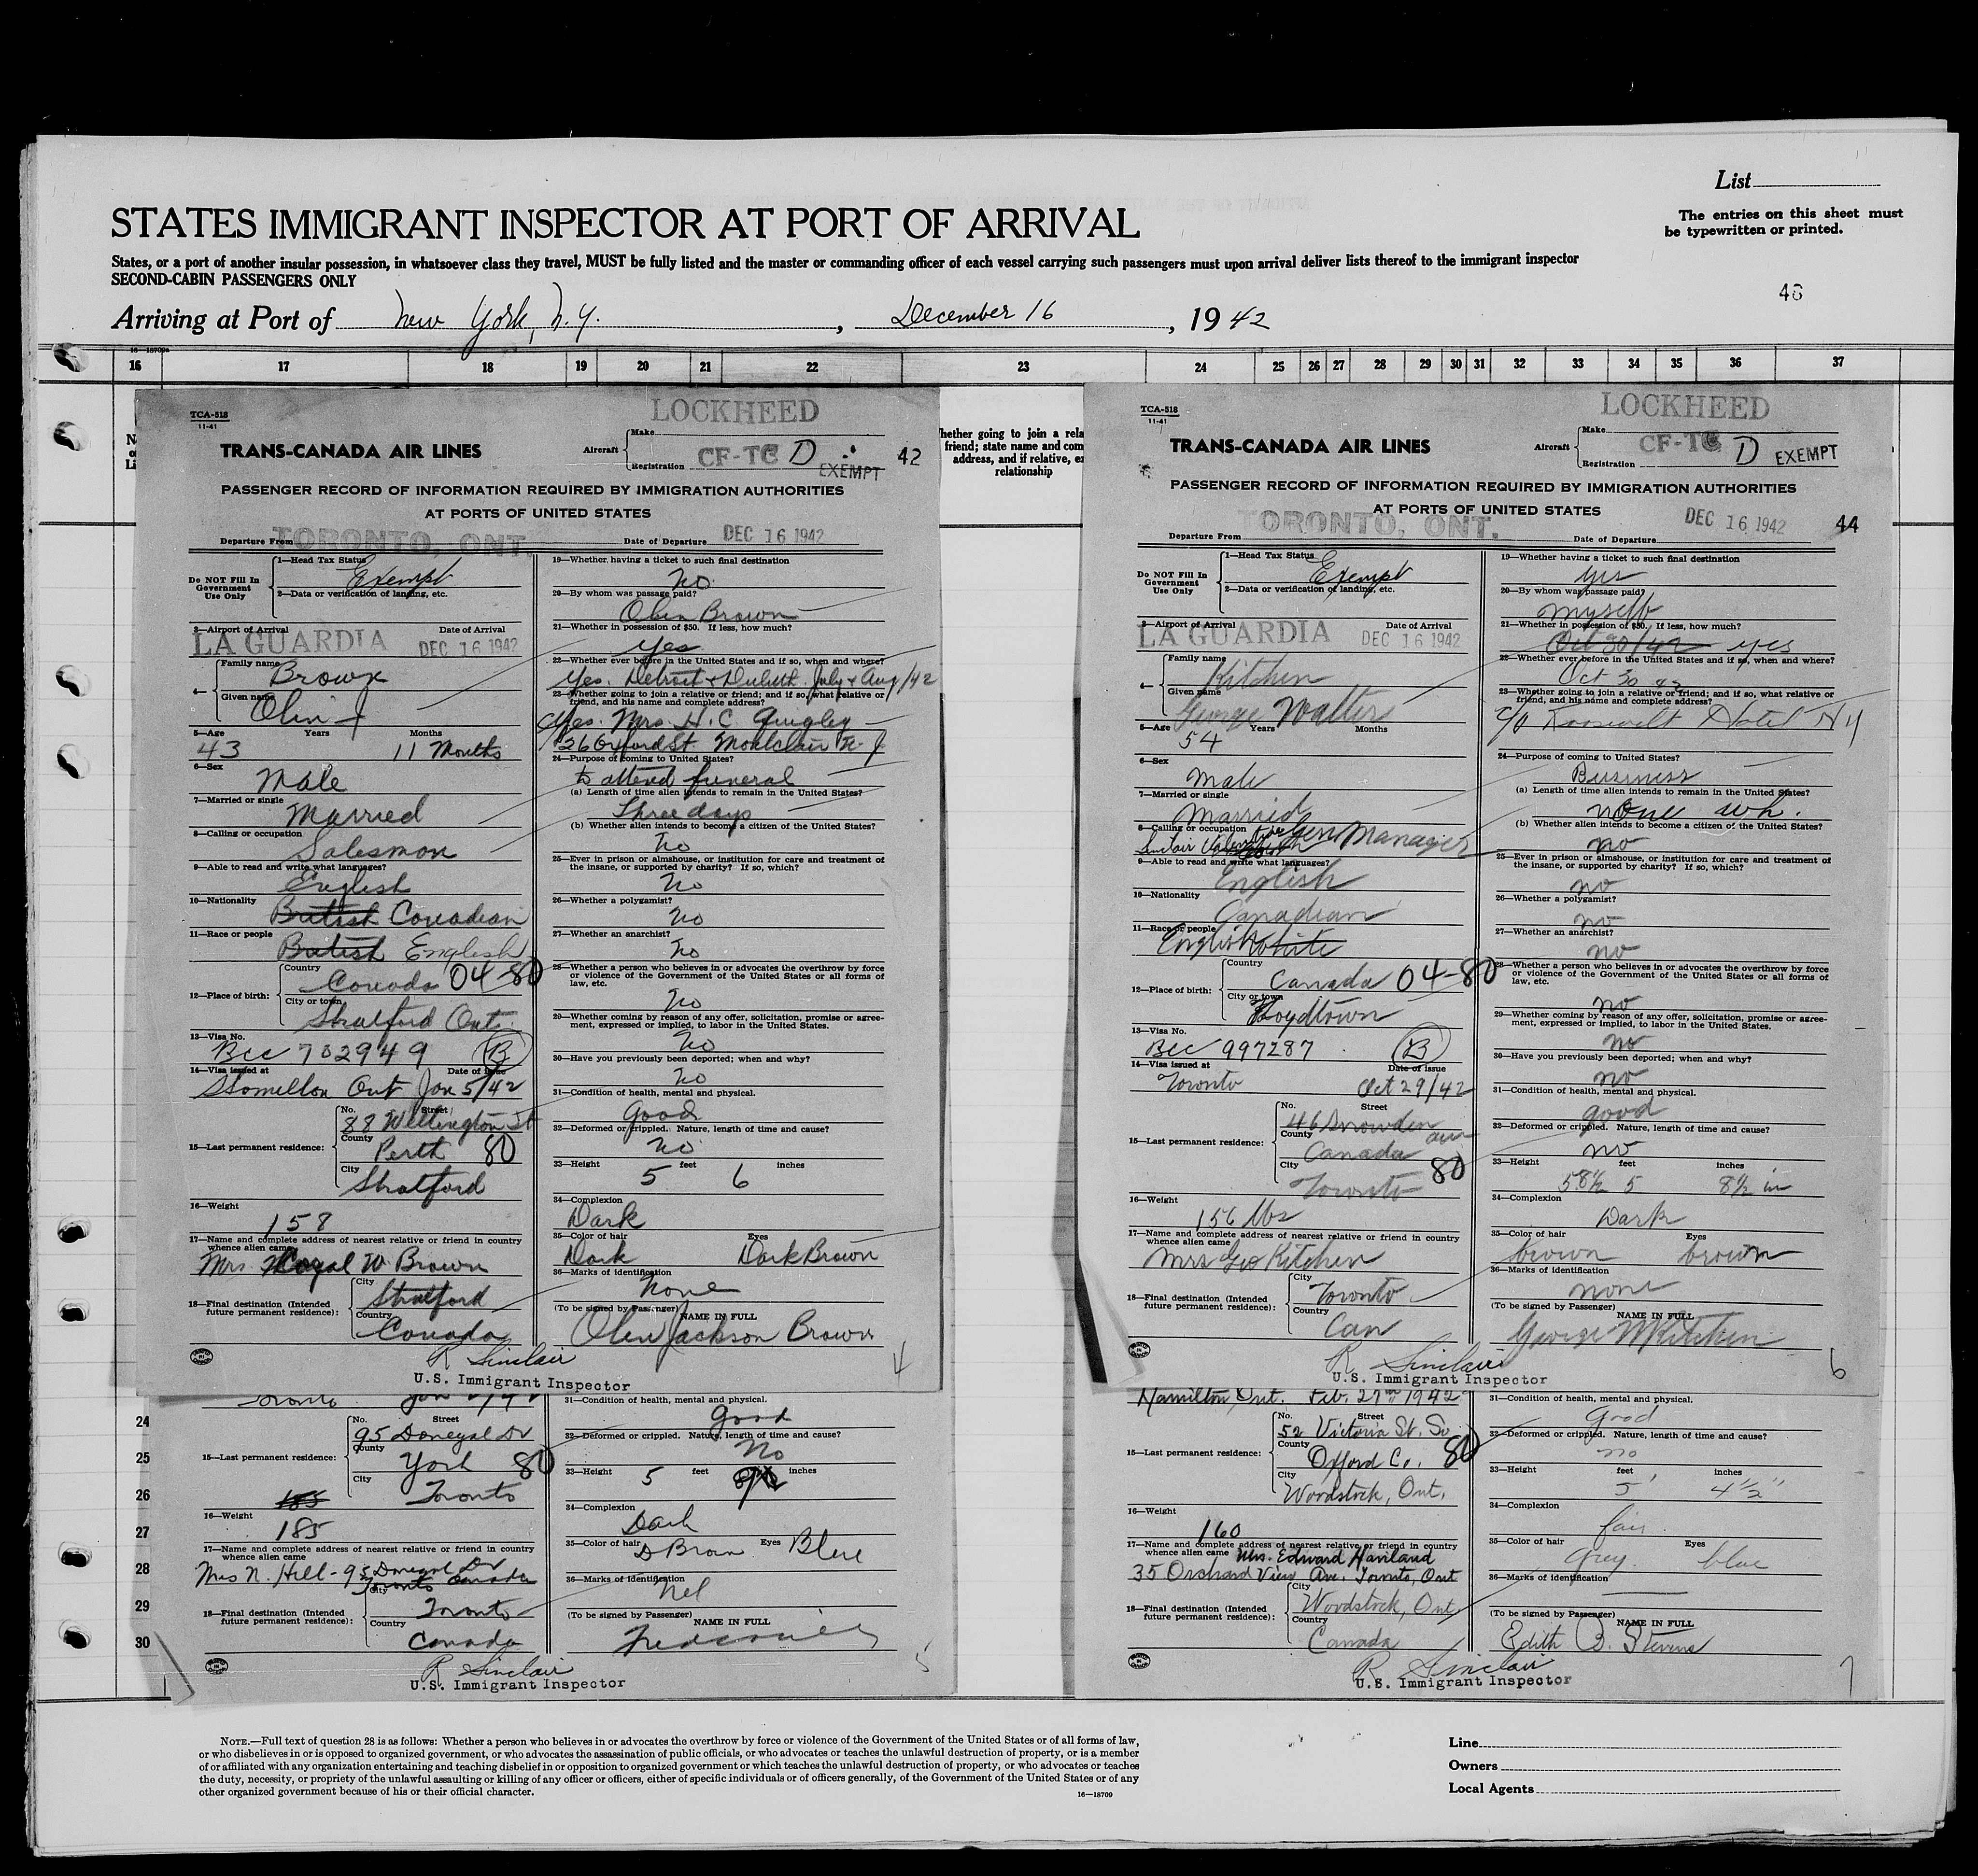 List
STATES IMMIGRANT INSPECTOR AT PORT OF ARRIVAL
The entries on this sheet must
be typewritten or printed.
States, or a port of another insular possession, in whatsoever class they travel, MUST be fully listed and the master or commanding officer of each vessel carrying such passengers must upon arrival deliver lists thereof to the immigrant inspector
SECOND-CABIN PASSENGERS ONLY
Arriving at Port of New York, N.Y. , December 16 , 1942
16 17 18 19 20 21 22 23 24 25 26 27 28 29 30 31 32 33 34 35 36 37
TCA-518
11-41
LOCKHEED
TRANS-CANADA AIR LINES
Aircraft
Make
Registration CF-TC D
EXEMPT
42
PASSENGER RECORD OF INFORMATION REQUIRED BY IMMIGRATION AUTHORITIES
AT PORTS OF UNITED STATES
Departure From TORONTO, ONT. Date of Departure DEC 16 1942
Do NOT Fill In
Government
Use Only
1—Head Tax Status
Exempt
2—Data or verification of landing, etc.
3—Airport of Arrival Date of Arrival
LA GUARDIA DEC 16 1942
4—
Family name Brown
Given name Olin J
5—Age Years Months
43 11 Months
6—Sex
Male
7—Married or single
Married
8—Calling or occupation
Salesman
9—Able to read and write what languages?
English
10—Nationality
British Canadian
11—Race or people
British English
12—Place of birth:
Country
Canada 04-80
City or town
Stratford Ont.
13—Visa No.
Bcc 702949 B
14—Visa issued at Date of issue
Hamilton Ont Jan 5/42
15—Last permanent residence:
No. Street
88 Wellington St
County
Perth 80
City
Stratford
16—Weight
158
17—Name and complete address of nearest relative or friend in country
whence alien came
Mrs. W. Brown
18—Final destination (Intended
future permanent residence):
City
Stratford
Country
Canada
19—Whether having a ticket to such final destination
No.
20—By whom was passage paid?
Olin Brown
21—Whether in possession of $50. If less, how much?
Yes
22—Whether ever before in the United States and if so, when and where?
Yes. Detroit & Duluth. July & Aug/42
23—Whether going to join a relative or friend; and if so, what relative or
friend, and his name and complete address?
Yes. Mrs. H. C. Quigley
126 Oxford St. Montclair N. J.
24—Purpose of coming to United States?
to attend funeral
(a) Length of time alien intends to remain in the United States?
Three days
(b) Whether alien intends to become a citizen of the United States?
No
25—Ever in prison or almshouse, or institution for care and treatment of
the insane, or supported by charity? If so, which?
No
26—Whether a polygamist?
No
27—Whether an anarchist?
No
28—Whether a person who believes in or advocates the overthrow by force
or violence of the Government of the United States or all forms of
law, etc.
No
29—Whether coming by reason of any offer, solicitation, promise or agree-
ment, expressed or implied, to labor in the United States.
No
30—Have you previously been deported; when and why?
No
31—Condition of health, mental and physical.
Good
32—Deformed or crippled. Nature, length of time and cause?
No
33—Height 5 feet 6 inches
34—Complexion
Dark
35—Color of hair Eyes
Dark Dark Brown
36—Marks of identification
None
(To be signed by Passenger) NAME IN FULL
Olin Jackson Brown
R Sinclair
U.S. Immigrant Inspector
4
hether going to join a rela
friend; state name and com
address, and if relative,
relationship
TCA-518
11-41
LOCKHEED
TRANS-CANADA AIR LINES
Aircraft
Make
Registration CF-TC D
EXEMPT
PASSENGER RECORD OF INFORMATION REQUIRED BY IMMIGRATION AUTHORITIES
AT PORTS OF UNITED STATES
44
Departure From TORONTO, ONT. Date of Departure DEC 16 1942
Do NOT Fill In
Government
Use Only
1—Head Tax Status
Exempt
2—Data or verification of landing, etc.
3—Airport of Arrival Date of Arrival
LA GUARDIA DEC 16 1942
4—
Family name
Kitchen
Given name
George Walter
5—Age Years Months
54
6—Sex
Male
7—Married or single
Married
8—Calling or occupation
Sinclair Gen Manager
9—Able to read and write what languages?
English
10—Nationality
Canadian
11—Race or people
English White
12—Place of birth:
Country
Canada 04-80
City or town
Lloydtown
13—Visa No.
Bcc 997287 B
14—Visa issued at Date of issue
Toronto Oct 29/42
15—Last permanent residence:
No. Street
46 Snowden ave
County
Canada
City 80
Toronto
16—Weight
156 lbs
17—Name and complete address of nearest relative or friend in country
whence alien came
Mrs Geo Kitchen
18—Final destination (Intended
future permanent residence):
City
Toronto
Country
Can
19—Whether having a ticket to such final destination
yes
20—By whom was passage paid?
myself
21—Whether in possession of $50. If less, how much?
Oct 30/42 yes
22—Whether ever before in the United States and if so, when and where?
Oct 30 42
23—Whether going to join a relative or friend; and if so, what relative or
friend, and his name and complete address?
c/o Roosevelt Hotel N Y
24—Purpose of coming to United States?
Business
(a) Length of time alien intends to remain in the United States?
one wk.
(b) Whether alien intends to become a citizen of the United States?
no
25—Ever in prison or almshouse, or institution for care and treatment of
the insane, or supported by charity? If so, which?
no
26—Whether a polygamist?
no
27—Whether an anarchist?
no
28—Whether a person who believes in or advocates the overthrow by force
or violence of the Government of the United States or all forms of
law, etc.
no
29—Whether coming by reason of any offer, solicitation, promise or agree-
ment, expressed or implied, to labor in the United States.
no
30—Have you previously been deported; when and why?
no
31—Condition of health, mental and physical.
good
32—Deformed or crippled. Nature, length of time and cause?
no
33—Height feet inches
5 8½ 5 8½ in
34—Complexion
Dark
35—Color of hair Eyes
brown brown
36—Marks of identification
none
(To be signed by Passenger) NAME IN FULL
George W Kitchen
R. Sinclair
U.S. Immigrant Inspector
6
24
25
26
27
28
29
30
Toronto
15—Last permanent residence:
No. Street
95 Donegal Dr
County
York 80
City
Toronto
185
16—Weight
185
17—Name and complete address of nearest relative or friend in country
whence alien came
Mrs N. Hill - 95 Donegal Dr
Toronto Canada
18—Final destination (Intended
future permanent residence):
City
Toronto
Country
Canada
31—Condition of health, mental and physical.
Good
32—Deformed or crippled. Nature, length of time and cause?
No
33—Height 5 feet inches
34—Complexion
Dark
35—Color of hair D Brown Eyes Blue
36—Marks of identification
Nil
(To be signed by Passenger) NAME IN FULL
R. Sinclair
U.S. Immigrant Inspector
5
Hamilton, Ont. Feb. 27th 1942
15—Last permanent residence:
No. Street
52 Victoria St. So.
County
Oxford Co. 80
City
Woodstock, Ont.
16—Weight
160
17—Name and complete address of nearest relative or friend in country
whence alien came Mrs. Edward Haviland
35 Orchard View Ave. Toronto, Ont
18—Final destination (Intended
future permanent residence):
City
Woodstock, Ont.
Country
Canada
31—Condition of health, mental and physical.
Good
32—Deformed or crippled. Nature, length of time and cause?
no
33—Height feet inches
5' 4½"
34—Complexion
fair
35—Color of hair Eyes
Grey. blue
36—Marks of identification
(To be signed by Passenger) NAME IN FULL
Edith B. Stevens
R. Sinclair
U.S. Immigrant Inspector
7
NOTE.—Full text of question 28 is as follows: Whether a person who believes in or advocates the overthrow by force or violence of the Government of the United States or of all forms of law,
or who disbelieves in or is opposed to organized government, or who advocates the assassination of public officials, or who advocates or teaches the unlawful destruction of property, or is a member
of or affiliated with any organization entertaining and teaching disbelief in or opposition to organized government or which teaches the unlawful destruction of property, or who advocates or teaches
the duty, necessity, or propriety of the unlawful assaulting or killing of any officer or officers, either of specific individuals or of officers generally, of the Government of the United States or of any
other organized government because of his or their official character.
16—18709
Line
Owners
Local Agents